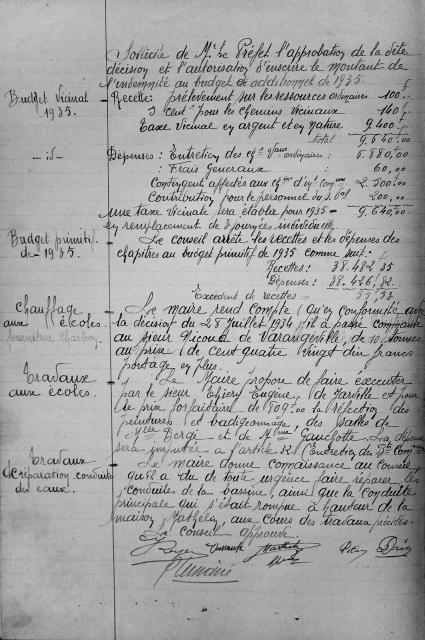 Sollicite de Mr le Préfet l'approbation de la dite
décision et l'autorisation d'inscrire le montant de
l'indemnité au budget additionnel de 1935.
Budget Vicinal 1935.
Recette: prélèvement sur les ressources ordinaires 100
5 cent. pour les chemins vicinaux 140
Taxe vicinal en argent et en nature 9400
Total 9.640,00
- id -
Dépenses: Entretien des ordinaires: 6.880,00
: Frais Généraux 60,00
Contingent affectés aux 2.500,00
Contribution pour le personnel du 200,00
une taxe vicinale sera établie pour 1935 = 9.640,00
en remplacement de 3 journées individuelle.
Budget primitif
de 1935.
Le conseil arrête les recettes et les dépenses des
chapitres au budget primitif de 1935 comme suit:
Recettes: 38.482,35
Dépenses: 38.426,82
Excédent de recettes = 55,53
Chauffage
aux écoles.
fourniture charbon
Le maire rend compte qu'en conformité avec
la décision du 28 juillet 1934, il a passé commande
au sieur Nicolas de Varangéville, de 10 tonnes
au prix de cent quatre vingt dix francs
portage en plus.
Travaux
aux écoles.
Le Maire propose de faire exécuter
par le sieur Thiery Eugène, de Jarville et pour
le prix forfaitaire de 809,00 la réfection des
peintures et badigeonnage des salles de
Melle Bergé et de Mme Gauchotte. La dépense
sera imputée à l'article 52 (Entretien des
Travaux
de réparation conduite
des eaux.
Le maire donne connaissance au Conseil
qu'il a du de toute urgence faire réparer les
conduites de la bassine, ainsi que la conduite
principale qui s'était rompue à hauteur de la
maison aux cours des travaux précités.
Le conseil approuve.